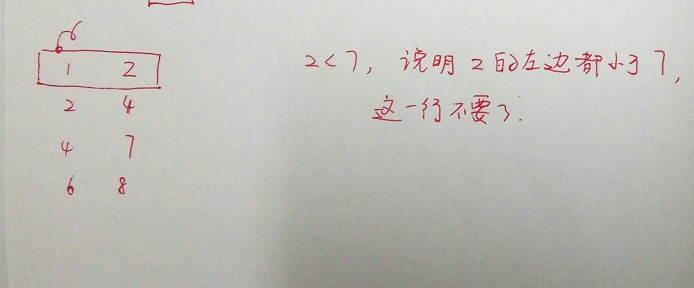 1 2
2 4
4 7
6 8
2<7, 说明2的左边都小于7,
这一行不要了.